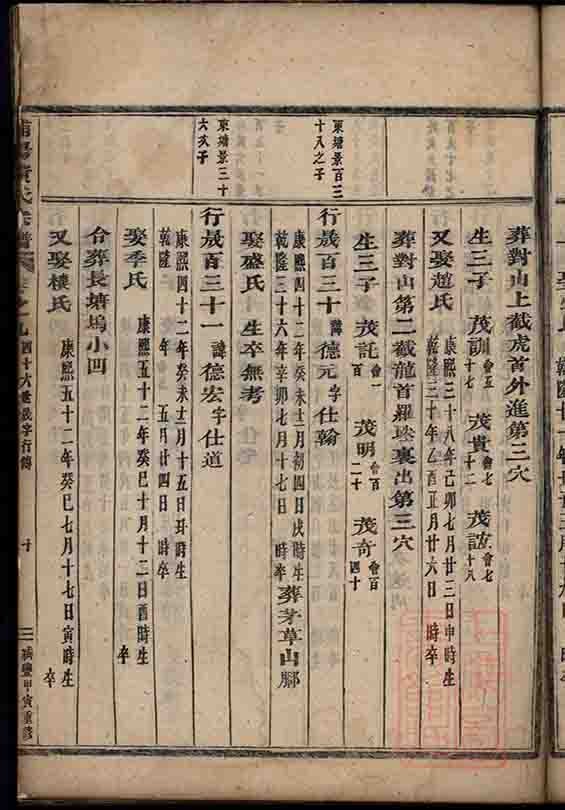 葬對山上截虎首外進第三穴
生三子 茂訓會五十七 茂貴會七十二 茂誼會七十八
又娶趙氏 康熙三十八年己卯七月廿三日申時生 乾隆三十年乙酉正月廿六日 時卒
葬對山第二截龍首羅埁裏出第三穴
生三子 茂託會一百 茂明會百二十 茂奇會百四十
東塘景百三十八之子
行晟百三十 諱德元字仕翰
康熙四十二年癸未十二月初四日戌時生 乾隆三十六年辛卯七月十七日 時卒 葬茅草山脚
娶盛氏 生卒無考
東塘景三十六次子
行晟百三十一 諱德宏字仕道
康熙四十二年癸未十二月十五日丑時生 乾隆 年 五月廿四日 時卒
娶季氏 康熙五十二年癸巳十月十二日酉時生 卒
合葬長塘塢小凹
又娶樓氏 康熙五十二年癸巳七月十七日寅時生 卒
氏宗譜 卷之九 四十六世晟字行傳 十 咸豐甲寅重修